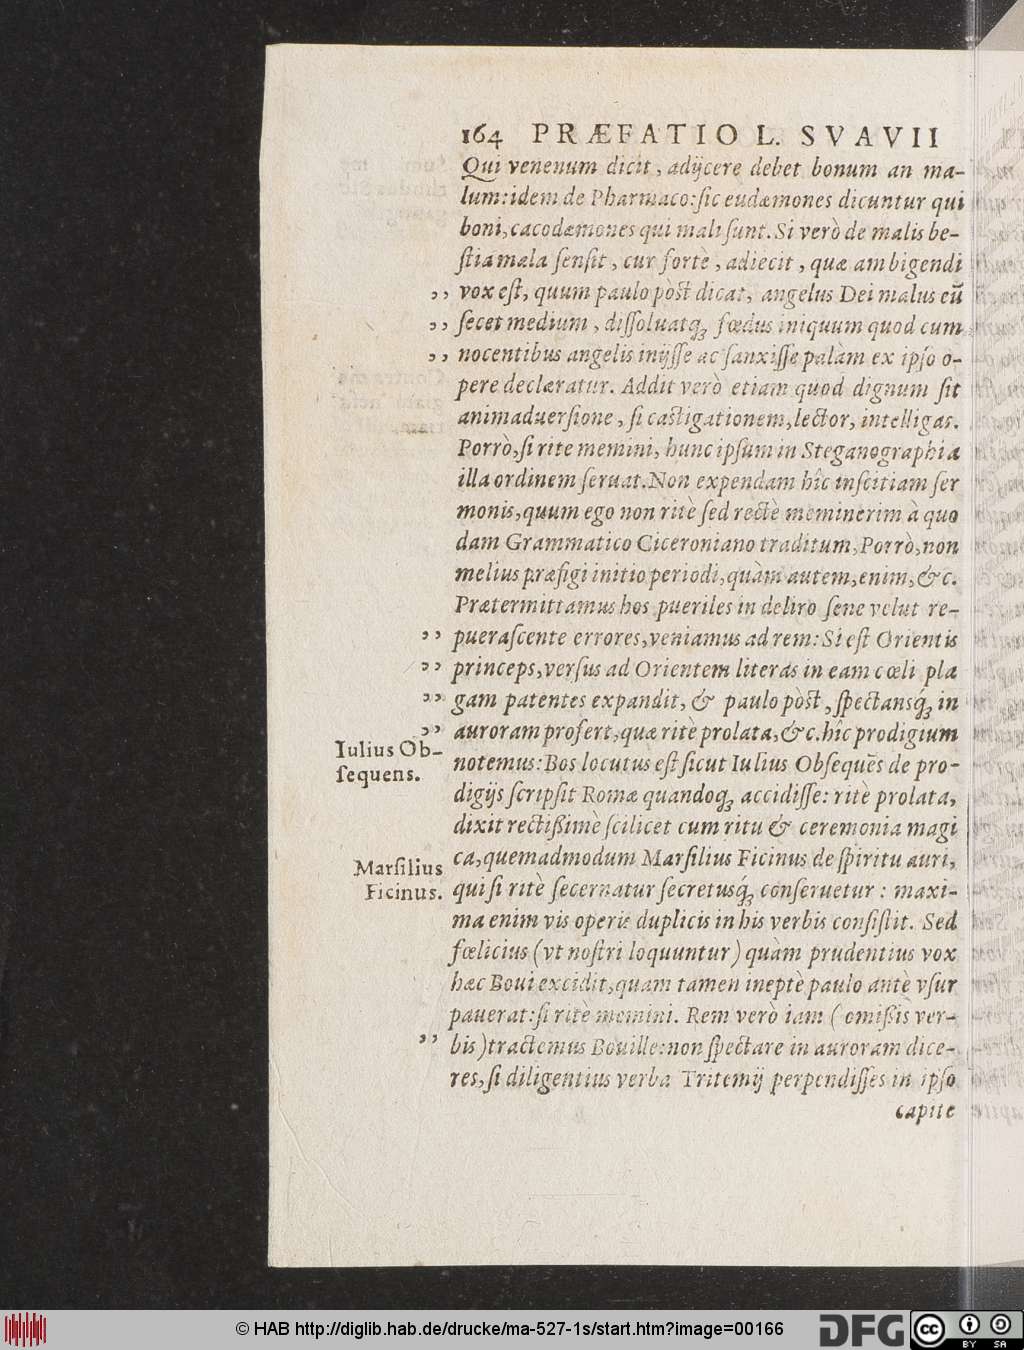 164 PRÆFATIO L. SVAVII
Qui venenum dicit, adijcere debet bonum an ma-
lum: idem de Pharmaco: sic eudæmones dicuntur qui
boni, cacodæmones qui mali sunt. Si verò de malis be-
stia mala sensit, cur fortè, adiecit, quæ ambigendi
,, vox est, quum paulo pòst dicat, angelus Dei malus eū
,, secet medium, dissoluatq́; fœdus iniquum quod cum
,, nocentibus angelis inijsse ac sanxisse palàm ex ipso o-
pere declaratur. Addit verò etiam quod dignum sit
animaduersione, si castigationem, lector, intelligas.
Porrò, si rite memini, hunc ipsum in Steganographia
illa ordinem seruat. Non expendam hîc inscitiam ser
monis, quum ego non ritè sed rectè meminerim à quo
dam Grammatico Ciceroniano traditum, Porrò, non
melius præfigi initio periodi, quàm autem, enim, &c.
Prætermittamus hos pueriles in deliro sene velut re-
,, puerascente errores, veniamus ad rem: Si est Orientis
,, princeps, versus ad Orientem literas in eam cœli pla
,, gam patentes expandit, & paulo pòst, spectansq́; in
,, auroram profert, quæ ritè prolata, &c. hîc prodigium
Iulius Ob-
sequens.
notemus: Bos locutus est sicut Iulius Obsequēs de pro-
digijs scripsit Romæ quandoq; accidisse: ritè prolata,
dixit rectißimè scilicet cum ritu & ceremonia magi
Marsilius
Ficinus.
ca, quemadmodum Marsilius Ficinus de spiritu auri,
qui si ritè secernatur secretusq́; conseruetur: maxi-
ma enim vis operis duplicis in his verbis consistit. Sed
fœlicius (vt nostri loquuntur) quàm prudentius vox
hæc Boui excidit, quam tamen ineptè paulo antè vsur
pauerat: si ritè memini. Rem verò iam (omißis ver-
,, bis) tractemus Bouille: non spectare in auroram dice-
res, si diligentius verba Tritemij perpendisses in ipso
capite
© HAB http://diglib.hab.de/drucke/ma-527-1s/start.htm?image=00166
DFG
cc BY SA